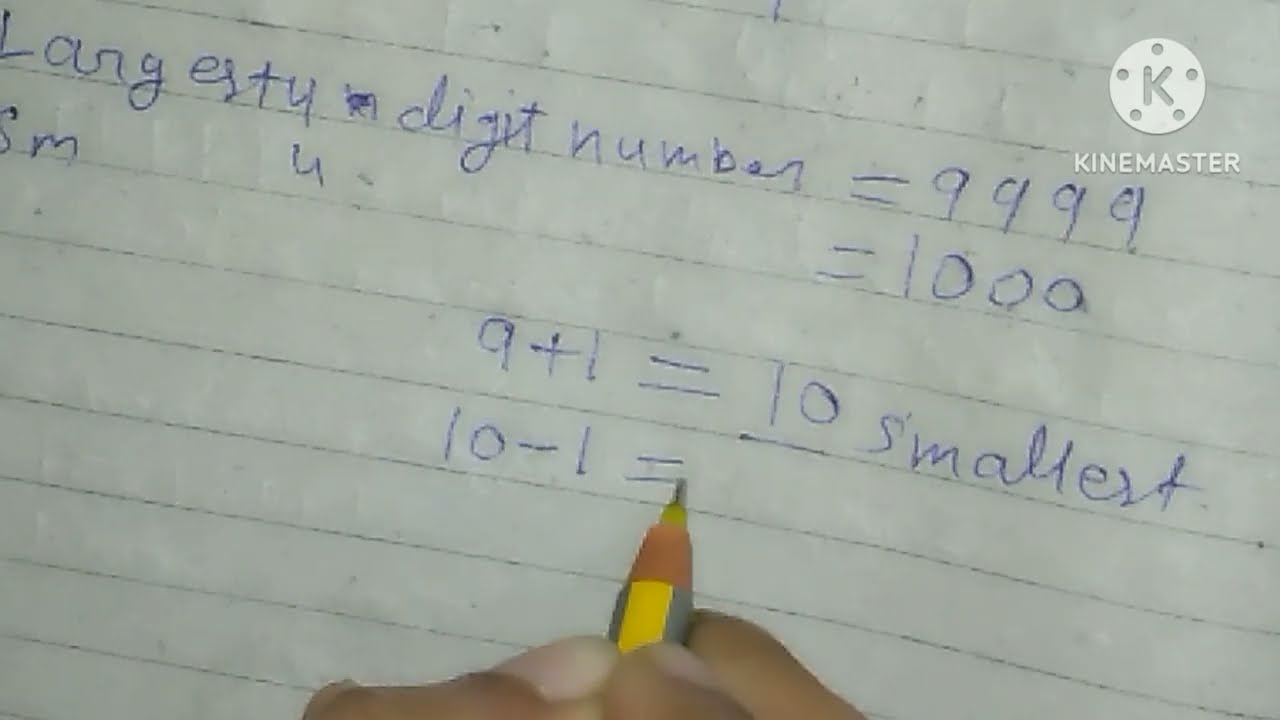 Largest 4-digit number = 9999
Sm 4. = 1000
9+1 = 10 smallest.
10-1 =
K
KINEMASTER